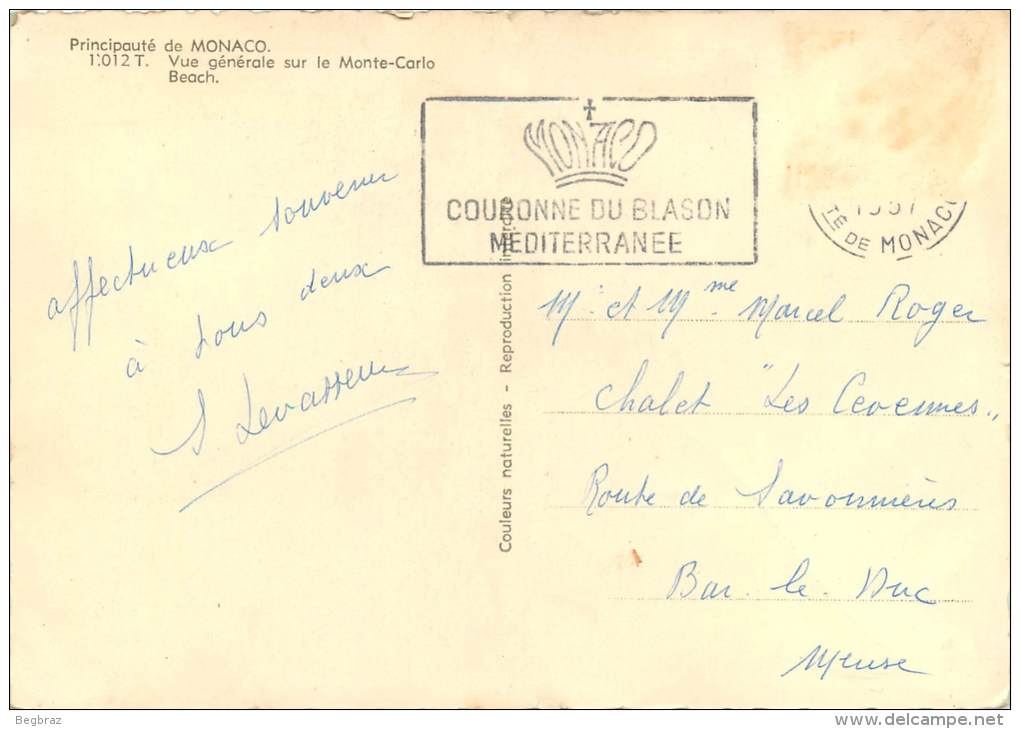 Principauté de MONACO.
1.012 T. Vue générale sur le Monte-Carlo
Beach.
MONACO
COURONNE DU BLASON
MEDITERRANEE
1957
TÉ DE MONACO
affectueux souvenir
à tous deux
S Levasseur
Couleurs naturelles - Reproduction interdite
M. et Mme Marcel Roger
Chalet "Les Cevennes"
Route de Savonnières
Bar-le-Duc
Meuse
Begbraz
http://www.delcampe.net